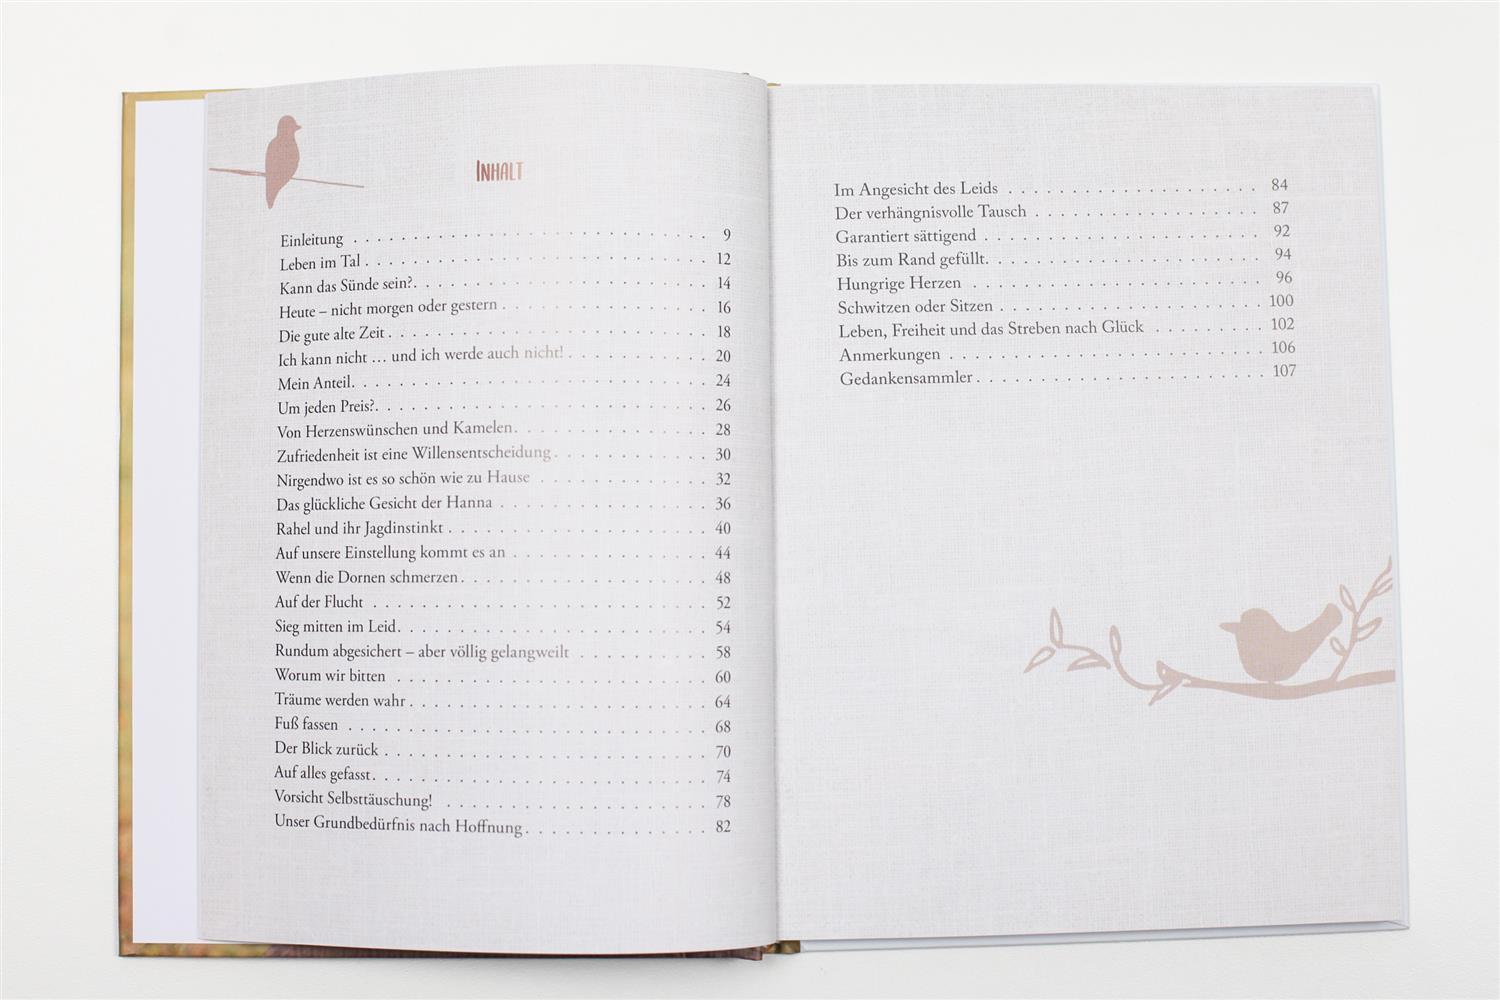 INHALT
Einleitung . . . . . . . . . . . . . . . . . . . . . . . . . . . . . . 9
Leben im Tal . . . . . . . . . . . . . . . . . . . . . . . . . . . . . 12
Kann das Sünde sein?. . . . . . . . . . . . . . . . . . . . . . . . . 14
Heute – nicht morgen oder gestern . . . . . . . . . . . . . . . . . 16
Die gute alte Zeit . . . . . . . . . . . . . . . . . . . . . . . . . . . 18
Ich kann nicht … und ich werde auch nicht! . . . . . . . . . . . . 20
Mein Anteil. . . . . . . . . . . . . . . . . . . . . . . . . . . . . . 24
Um jeden Preis?. . . . . . . . . . . . . . . . . . . . . . . . . . . . 26
Von Herzenswünschen und Kamelen. . . . . . . . . . . . . . . . . 28
Zufriedenheit ist eine Willensentscheidung . . . . . . . . . . . . . 30
Nirgendwo ist es so schön wie zu Hause . . . . . . . . . . . . . . 32
Das glückliche Gesicht der Hanna . . . . . . . . . . . . . . . . . . 36
Rahel und ihr Jagdinstinkt . . . . . . . . . . . . . . . . . . . . . . 40
Auf unsere Einstellung kommt es an . . . . . . . . . . . . . . . . . 44
Wenn die Dornen schmerzen. . . . . . . . . . . . . . . . . . . . . 48
Auf der Flucht . . . . . . . . . . . . . . . . . . . . . . . . . . . . 52
Sieg mitten im Leid. . . . . . . . . . . . . . . . . . . . . . . . . . 54
Rundum abgesichert – aber völlig gelangweilt . . . . . . . . . . . 58
Worum wir bitten . . . . . . . . . . . . . . . . . . . . . . . . . . 60
Träume werden wahr . . . . . . . . . . . . . . . . . . . . . . . . . 64
Fuß fassen . . . . . . . . . . . . . . . . . . . . . . . . . . . . . . 68
Der Blick zurück . . . . . . . . . . . . . . . . . . . . . . . . . . . 70
Auf alles gefasst. . . . . . . . . . . . . . . . . . . . . . . . . . . . 74
Vorsicht Selbsttäuschung! . . . . . . . . . . . . . . . . . . . . . . 78
Unser Grundbedürfnis nach Hoffnung . . . . . . . . . . . . . . . . 82
Im Angesicht des Leids . . . . . . . . . . . . . . . . . . . . 84
Der verhängnisvolle Tausch . . . . . . . . . . . . . . . . . . 87
Garantiert sättigend . . . . . . . . . . . . . . . . . . . . . . 92
Bis zum Rand gefüllt. . . . . . . . . . . . . . . . . . . . . . 94
Hungrige Herzen . . . . . . . . . . . . . . . . . . . . . . . 96
Schwitzen oder Sitzen . . . . . . . . . . . . . . . . . . . . . 100
Leben, Freiheit und das Streben nach Glück . . . . . . . . . 102
Anmerkungen . . . . . . . . . . . . . . . . . . . . . . . . . 106
Gedankensammler . . . . . . . . . . . . . . . . . . . . . . . 107